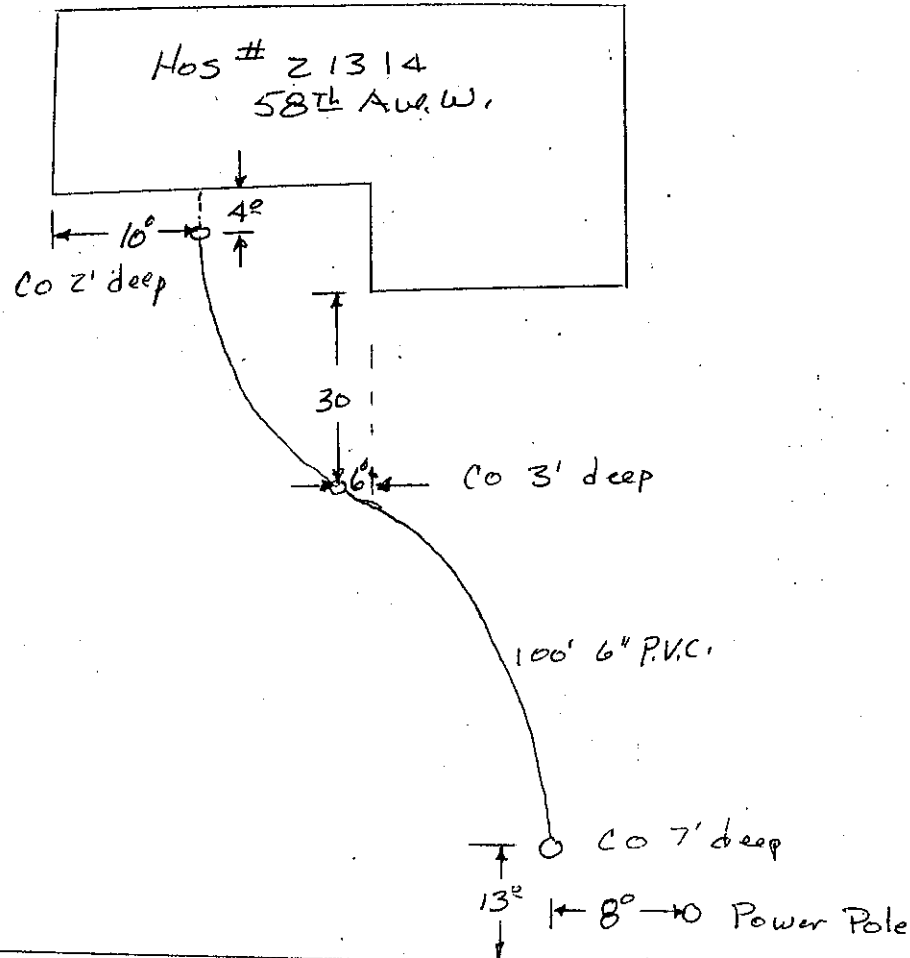 Hos # 21314
58Th Ave. W.
4⁰
10⁰
Co 2' deep
30
6⁰
Co 3' deep
100' 6" P.V.C.
Co 7' deep
13⁰
8⁰
Power Pole